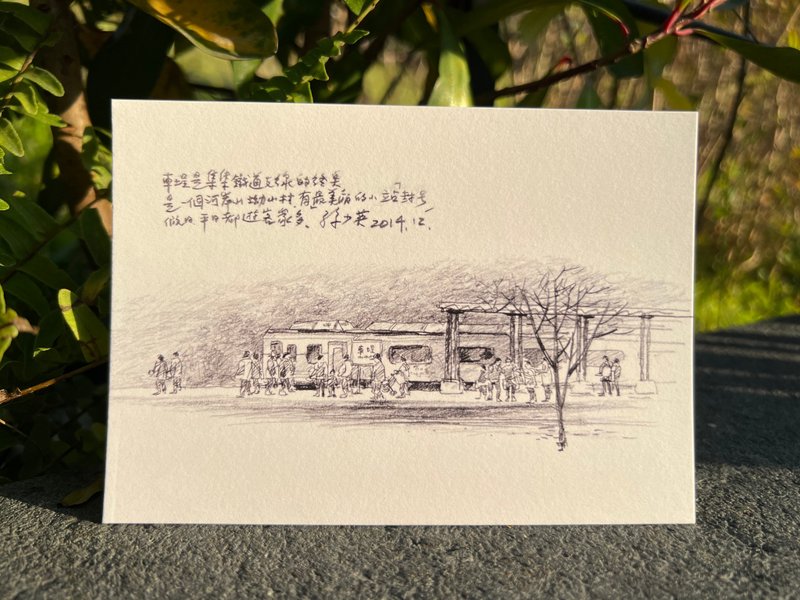 車埕是集集鐵道支線的終點
是一個河岸山坳山村,有「最美麗的小站」封号,
假日平日都遊客衆多、孫少英2014.12.
車埕